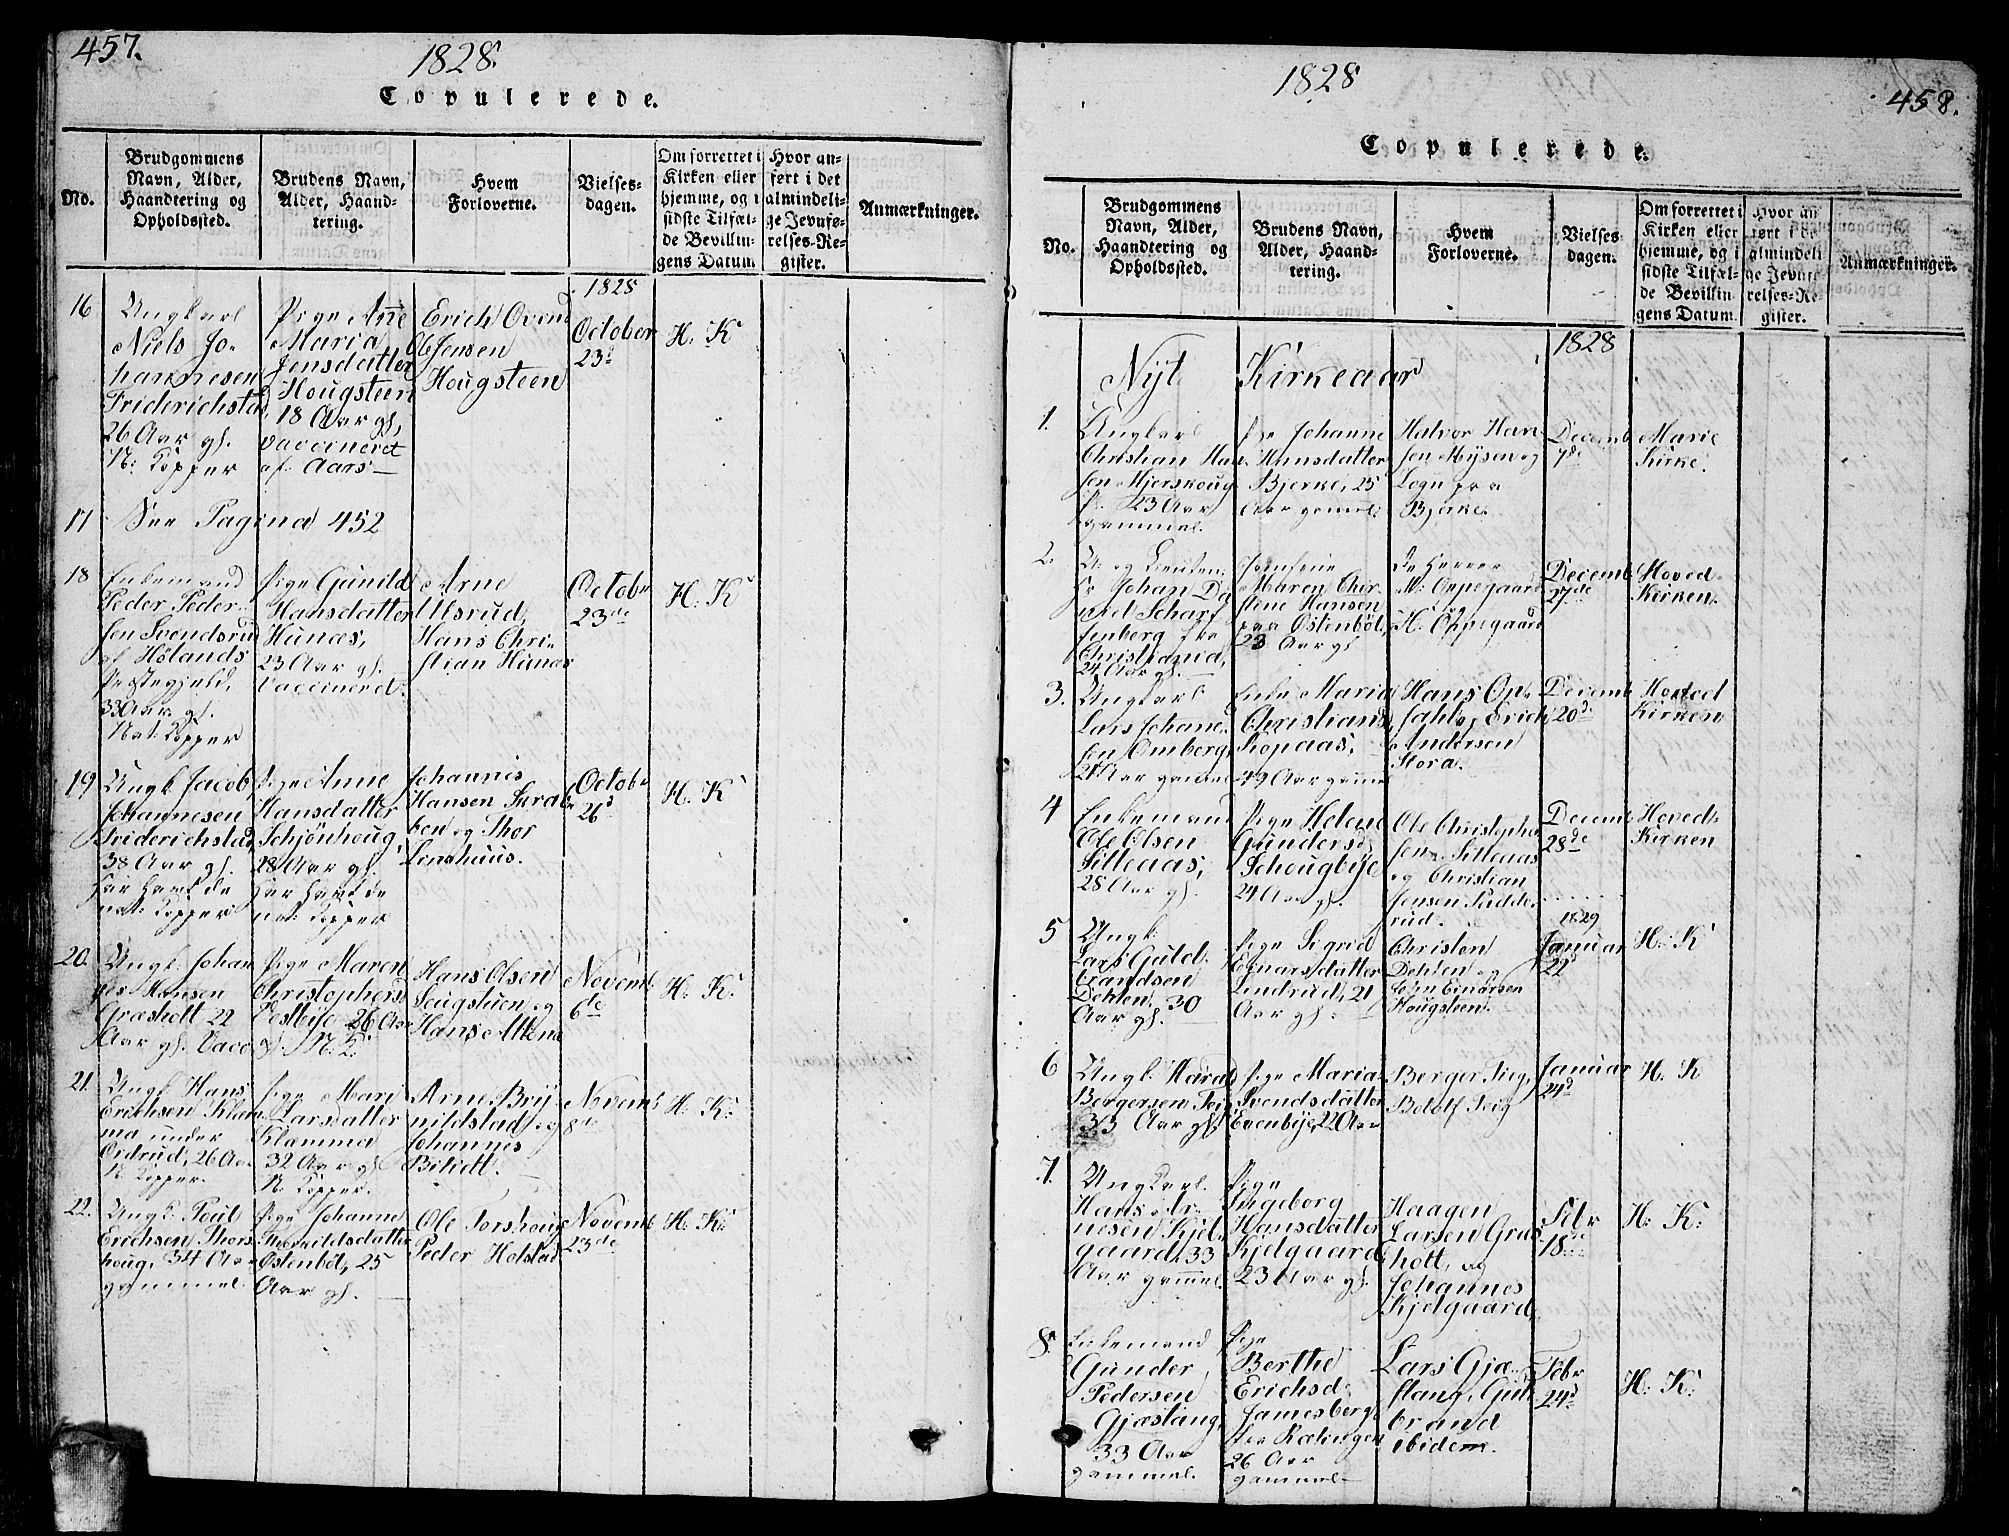 457.
1828.
Copulerede.
No.
Brudgommens
Navn, Alder,
Haandtering og
Opholdssted.
Brudens Navn,
Alder, Haand-
tering.
Hvem
Forloverne.
Vielses-
dagen.
Om forrettet i
Kirken eller
hjemme, og i
sidste Tilfæl-
de Bevillin-
gens Datum.
Hvor an-
ført i det
almindeli-
ge Jevnfø-
relses-Re-
gister.
Anmærkninger.
16
Ungkarl
Niels Jo-
hannesen
Friderichsta
26 Aar gl.
N: Kopper
Pige Ane
Maria
Jensdatter
Hougsteen
18 Aar gl,
vaccineret
af Aars
Erich Oven
Ole Jensen
Hougsteen
1828
October
23d
H: K
17
See Pagina 452
18
Enkemand
Peder Peder-
sen Svendsrud
af Hølands
Præstegjeld,
33 Aar gl.
Nat: Kopper
Pige Gunild
Hansdatter
Hunæs,
23 Aar gl.
Vaccineret.
Arne
Ulsrud,
Hans Chri-
stian Hunæs
Octobr
23de
H: K
19
Ungk. Jacob
Johannesen
Friderichstad
38 Aar gl.
har havt de
nat: Kopper
Pige Anne
Hansdatter
Schjønhoug,
28 Aar gl.
har havt de
nat: Kopper
Johannis
Hansen
ben og Thor
Lenshuus.
Octobr
26d
H: K
20.
Ungk. Johan
nes Hansen
Græsholt 22
Aar gl. Vacc
Pige Maren
Christophersd
Vestbye 26 Aar
gl. N: K:
Hans Olsen
Sougstuen og
Hans
Novemb
6te
H: K:
21.
Ungk. Hans
Erichsen Klæm
ma under
Ordrud, 26 Aar
N: Kopper.
Pige Mari
Larsdatter
Klæmma
32 Aar gl
N: Kopper.
Arne Bryn
nildstad og
Johannes
Bilidt.
Novemb
8de
H: K:
22.
Ungk. Poul
Erichsen Thors
houg, 34 Aar
gammel
Pige Johanne
Thorkildsdatter
Østenbøl, 25
Aar gl.
Ole Torshoug
Peder Holstad
Novemb
23de
H: K:
1828
458.
Copulerede.
No.
Brudgommens
Navn, Alder,
Haandtering og
Opholdssted.
Brudens Navn,
Alder, Haand-
tering.
Hvem
Forloverne.
Vielses-
dagen.
Om forrettet i
Kirken eller
hjemme, og i
sidste Tilfæl-
de Bevillin-
gens Datum.
Hvor an
ført i de
almindeli
ge Jevnfø
relses-Re-
gister.
Anmærkninger.
1828
Nyt Kirkeaar
1.
Ungkarl
Christian Han
sen Mjerskoug
23 Aar
gammel.
Pge Johanne
Hansdatter
Bjerke, 25
Aar gammel
Halvor Han
sen Mysen og
Bjerke.
Decemb
7de
Marie
Kirke.
2.
Johan Da
vid Scharf
fenberg fra
Christiania,
24 Aar gl.
Jomfrue
Maren Chir
stene Hansen
paa Østenbøl,
23 Aar gl
De Herrer
M: Oppegaard
H. Oppegaard
Decemb
27de
Hoved-
Kirken.
3.
Ungkarl
Lars Johane
sen Omberg
21 Aar gammel
Enke Maria
Christians
Kopaas,
49 Aar gammel
Hans Op-
sahl og Erich
Andersen
Stora.
Decemb
20d
Hoved
Kirken
4
Enkemand
Ole Olsen
Sitleaas,
28 Aar gl.
Pige Helene
Gundersd
Schougbye
24 Aar gl.
Ole Christopher
sen Sitleaas
og Christian
Jensen Sudde-
rud.
Decemb
28de
Hoved-
Kirken
5
Ungk.
Lars Guld-
brandsen
Dehlen, 30
Aar gl.
Pige Sigrid
Enarsdatter
Lindrud, 21
Aar gl.
Christen
Dehlen og
Enarsen
Hougsteen.
1829
Januar
22d
H: K
6
Ungk. Harald
Bergersen Teig
33 Aar gl.
Pige Maria
Svendsdatter
Evenbye, 22 Aar
Berger Teig,
Botolf Teig
Januar
24d
H: K
7.
Ungkarl
Hans Ar-
nesen Kjel-
gaard, 33
Aar gammel.
Pige
Ingeborg
Hansdatter
Kjelgaard
23 Aar gl.
Haagen
Larsen Græs
holt, og
Johannes
Kjelgaard,
Febr
18de
H: K:
8.
Enkemand
Gunder
Pedersen
Gjæstang,
33 Aar
gammel.
Pige
Berthe
Erichsd.
Jamesberg
fra Rælingen
26 Aar
gammel
Lars Gjæ-
stang, Gul
brand
ibidem.
Febr
24d
H: K: